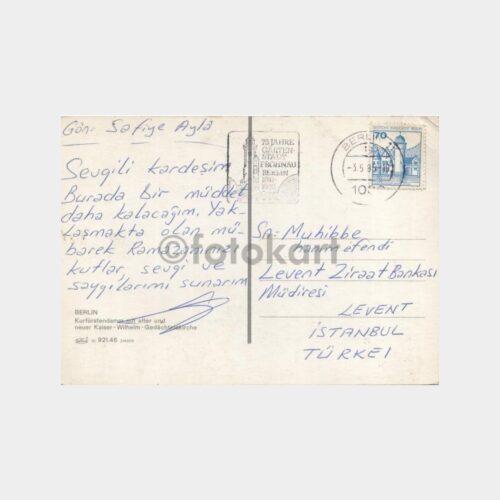 Gön: Safiye Ayla
Sevgili kardeşim
Burada bir müddet
daha kalacağım. Yak-
laşmakta olan mü-
barek Ramazanınızı
kutlar, sevgi ve
saygılarımı sunarım
BERLIN
Kurfürstendamm mit alter und
neuer Kaiser-Wilhelm-Gedächtniskirche
921.46
75 JAHRE
GARTEN-
STADT
FROHNAU
BERLIN
BERLIN
70
Sa: Muhibbe
hanımefendi
Levent Ziraat Bankası
Müdiresi
LEVENT
İSTANBUL
TÜRKEI
©fotokart